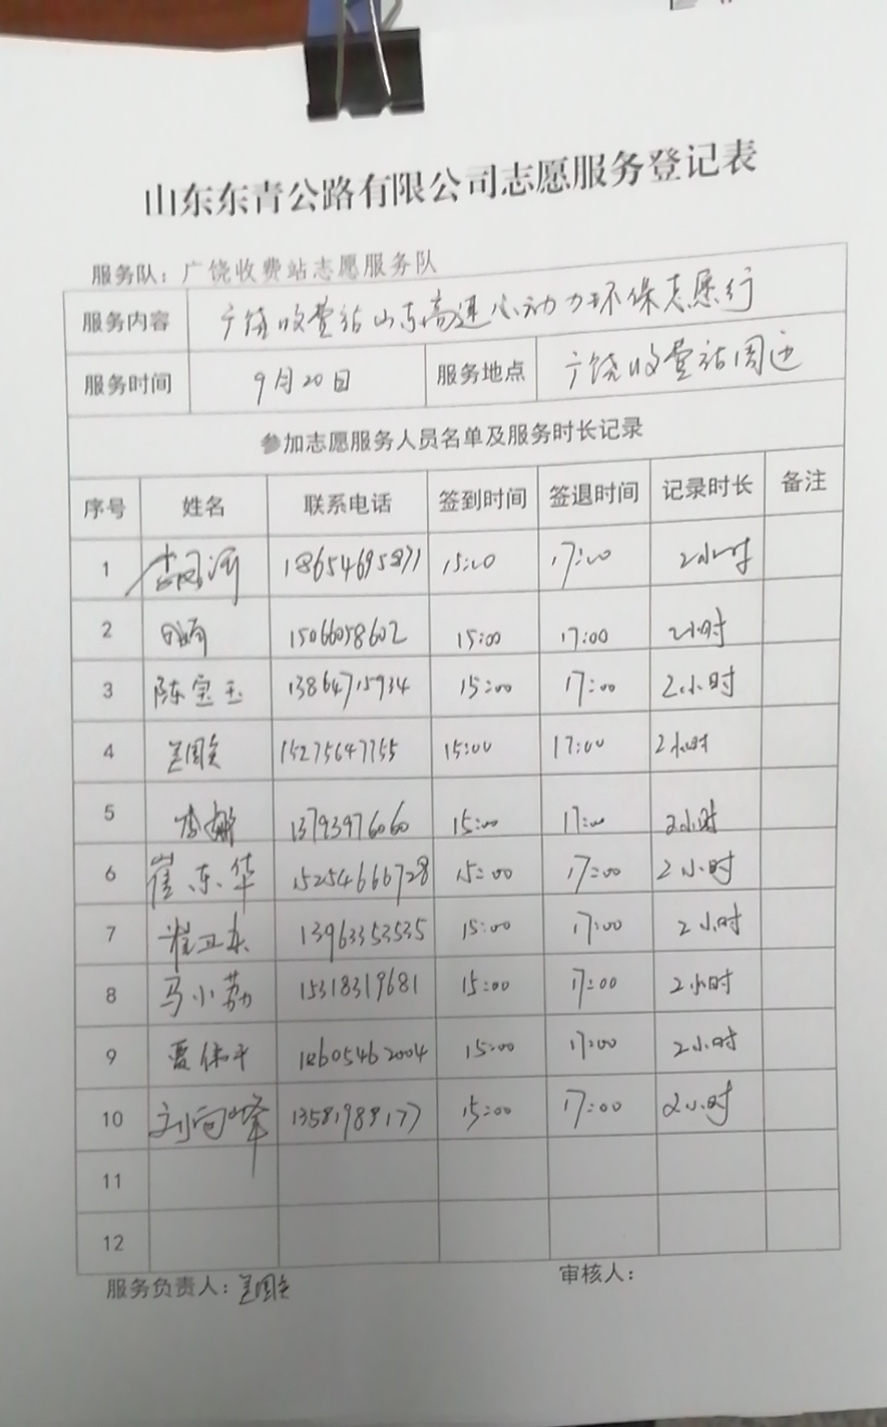 山东东青公路有限公司志愿服务登记表
服务队：广饶收费站志愿服务队
服务内容 广饶收费站山东高速心动力环保志愿行
服务时间 9月20日 服务地点 广饶收费站周边
参加志愿服务人员名单及服务时长记录
序号 姓名 联系电话 签到时间 签退时间 记录时长 备注
1 18654695871 15:00 17:00 2小时
2 15066058602 15:00 17:00 2小时
3 陈宝玉 13864715934 15:00 17:00 2小时
4 15275647755 15:00 17:00 2小时
5 李娜 13793976060 15:00 17:00 2小时
6 崔东华 15254666728 15:00 17:00 2小时
7 崔卫东 13963353535 15:00 17:00 2小时
8 马小荔 15318319681 15:00 17:00 2小时
9 18605462004 15:00 17:00 2小时
10 刘向峰 13581988177 15:00 17:00 2小时
11
12
服务负责人： 审核人：